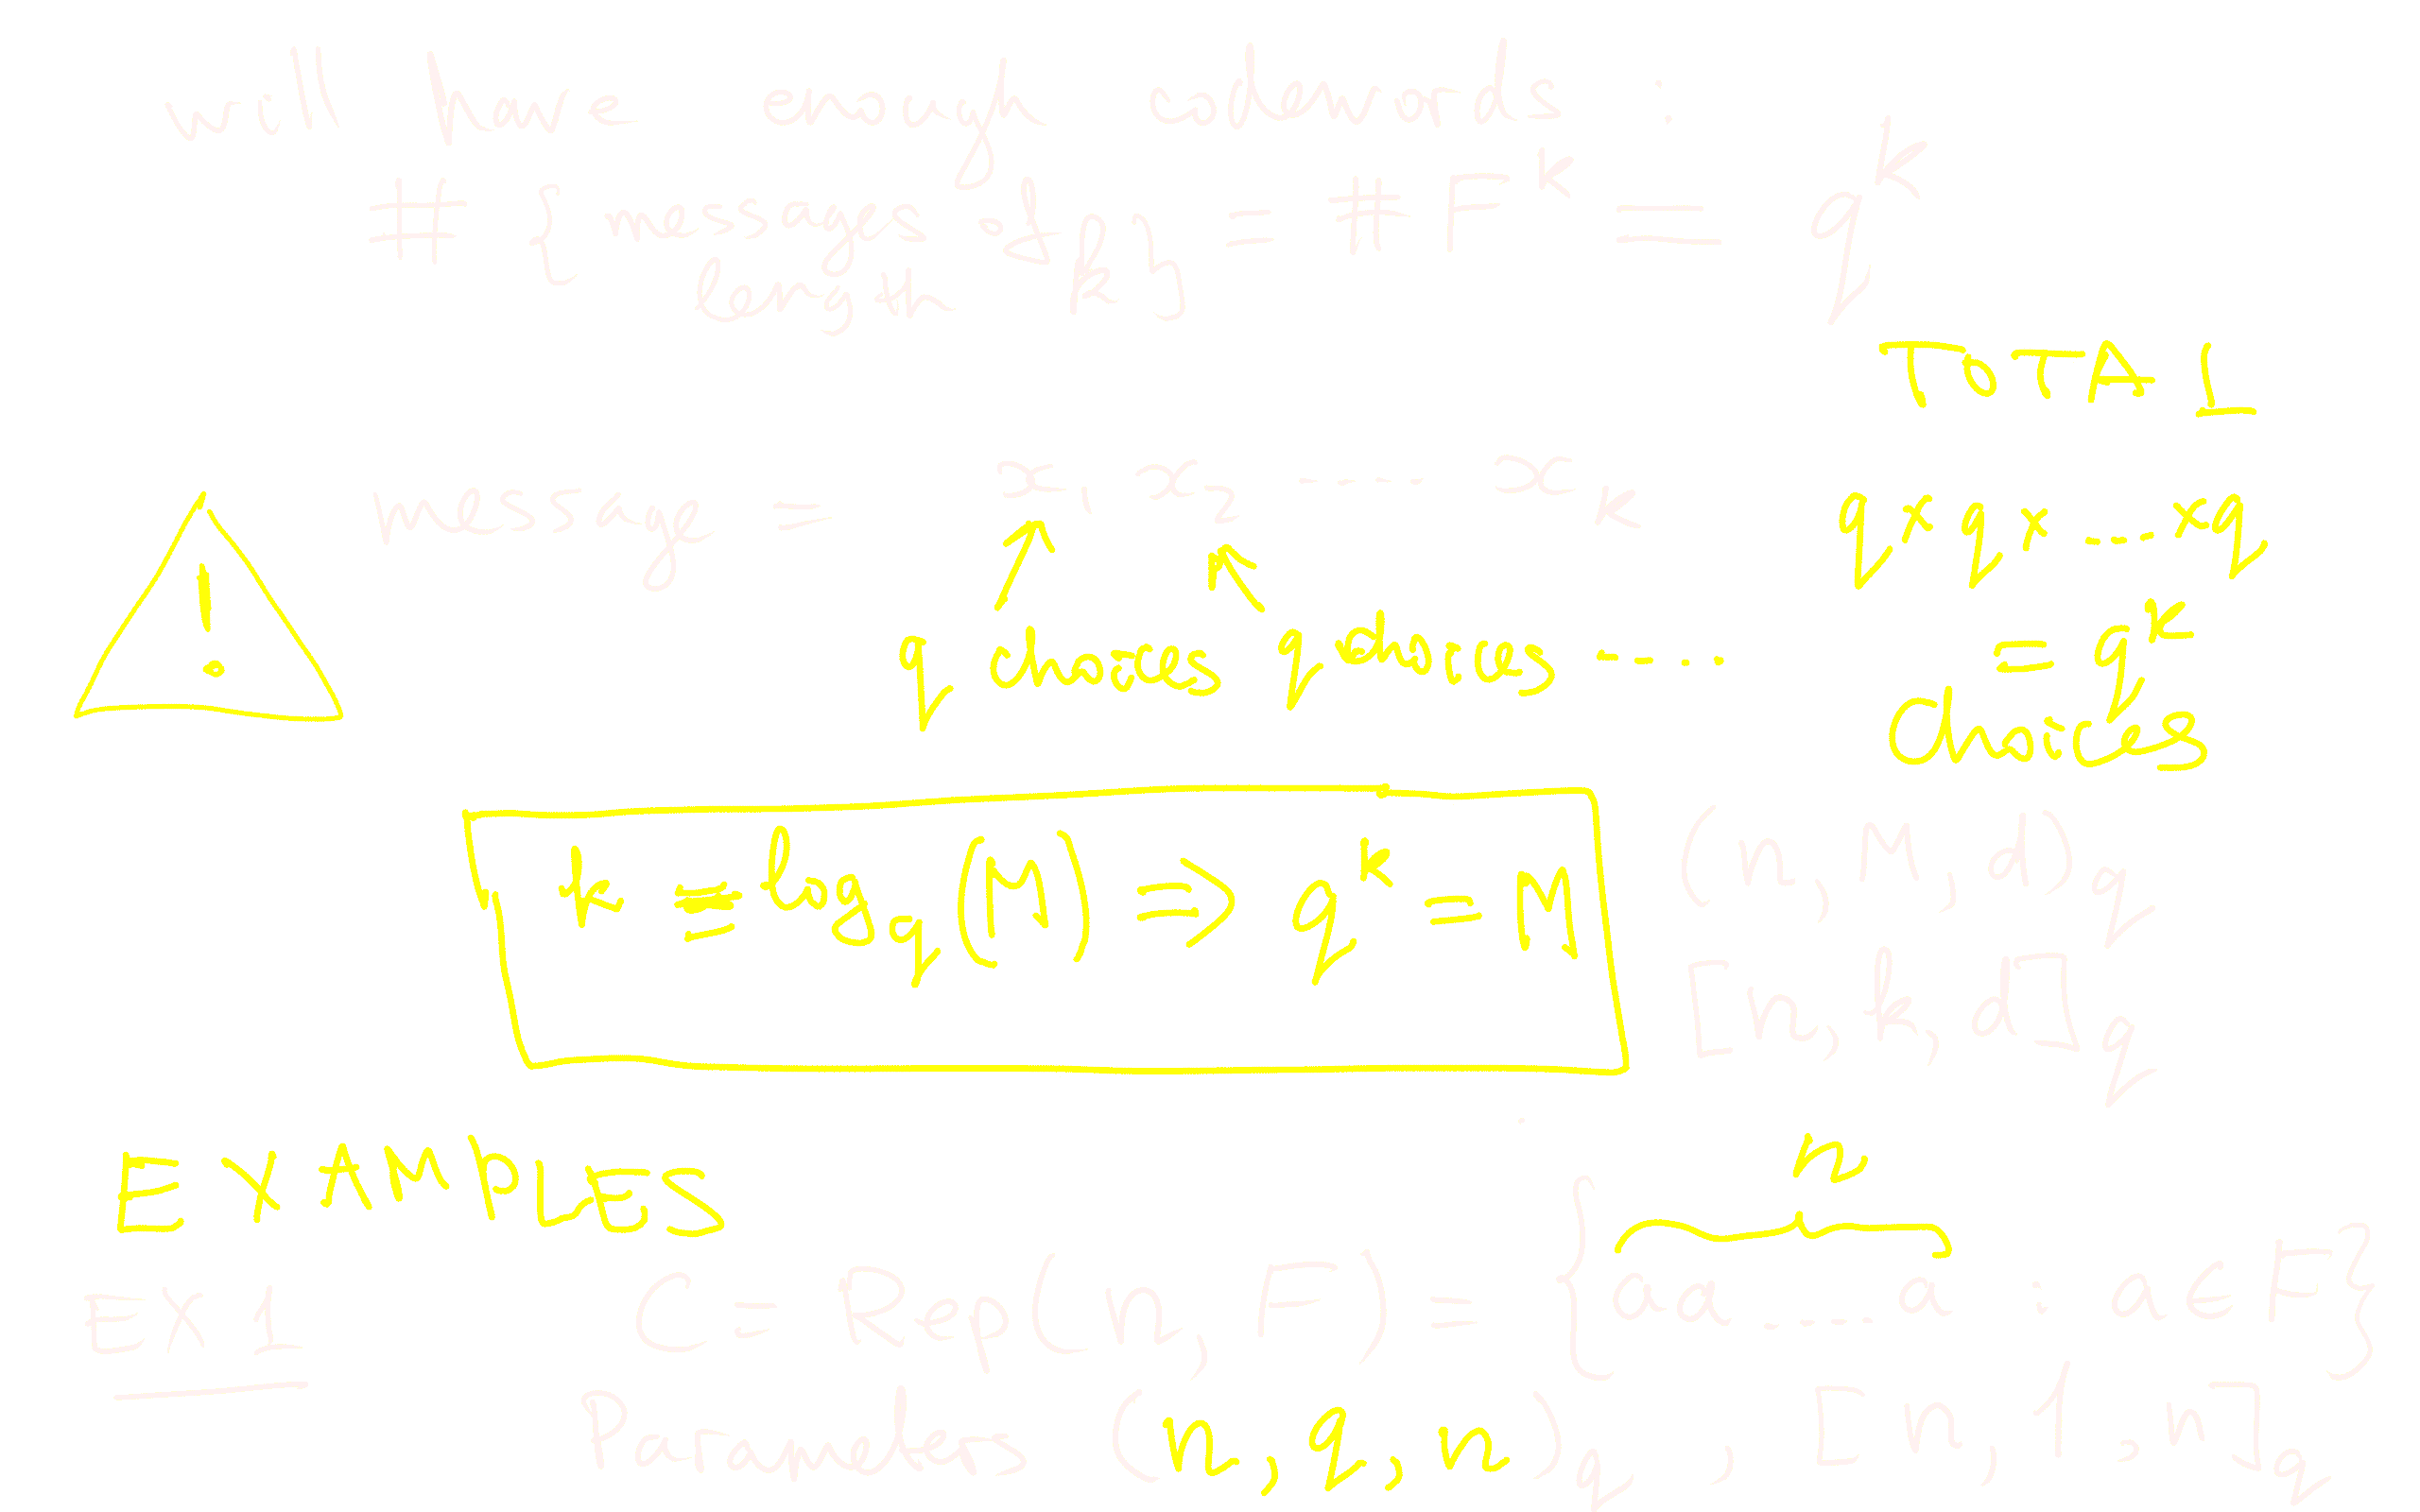 will have enough codewords :
# { messages of length k } = # F^k = q^k
TOTAL
message = x₁ x₂ ---- x_k
q × q × ... × q
! q choices q choices ---- = q^k choices
k = log_q (M) ⇒ q^k = M
(n, M, d)_q
[n, k, d]_q
EXAMPLES
n
EX 1 C = Rep(n, F) = { aa ---- a : a ∈ F }
Parameters (n, q, n)_q , [n, 1, n]_q